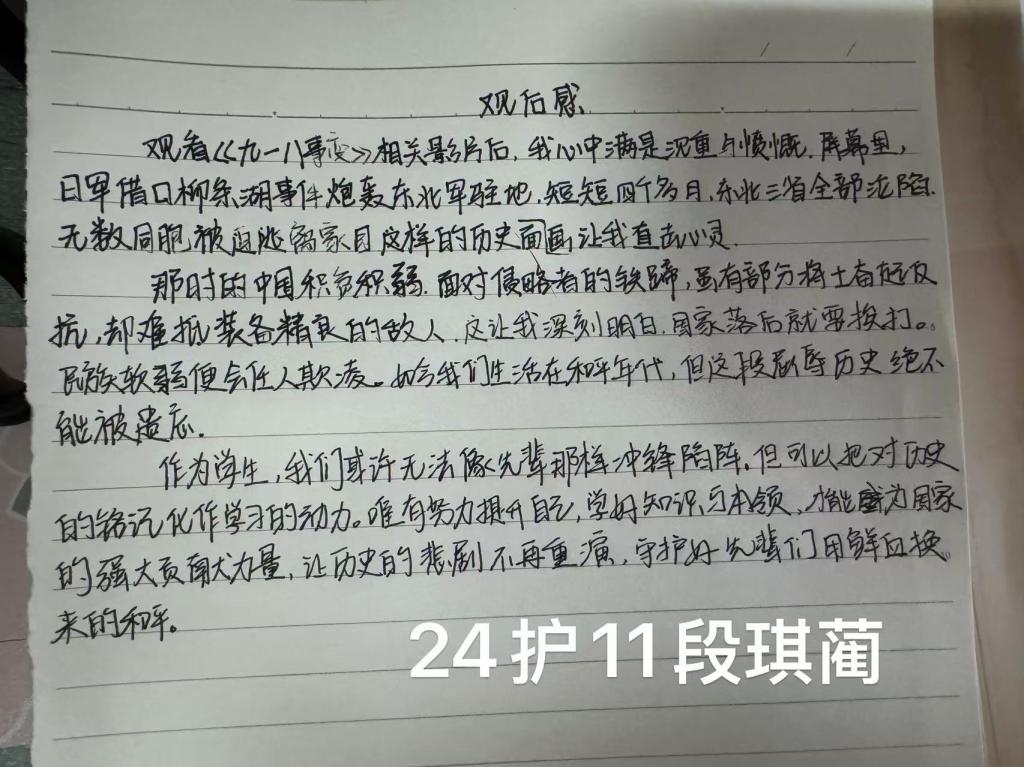 观后感
观看《九一八事变》相关影片后，我心中满是沉重与愤慨。屏幕里，
日军借口柳条湖事件炮轰东北军驻地，短短四个多月，东北三省全部沦陷.
无数同胞被迫逃离家园这样的历史画面让我直击心灵.
那时的中国积贫积弱.面对侵略者的铁蹄，虽有部分将士奋起反
抗，却难抵装备精良的敌人.这让我深刻明白.国家落后就要挨打。
民族软弱便会任人欺凌。如今我们生活在和平年代，但这段屈辱历史绝不
能被遗忘.
作为学生，我们或许无法像先辈那样冲锋陷阵.但可以把对历史
的铭记化作学习的动力。唯有努力提升自己，学好知识与本领，才能为国家
的强大贡献力量，让历史的悲剧不再重演，守护好先辈们用鲜血换
来的和平。
24护11段琪蔺